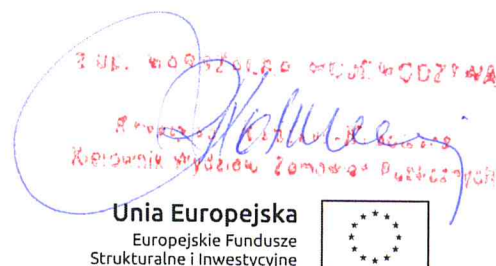 Z up. MARSZAŁKA WOJEWÓDZTWA
Kierownik Wydziału Zamówień Publicznych
Unia Europejska
Europejskie Fundusze
Strukturalne i Inwestycyjne